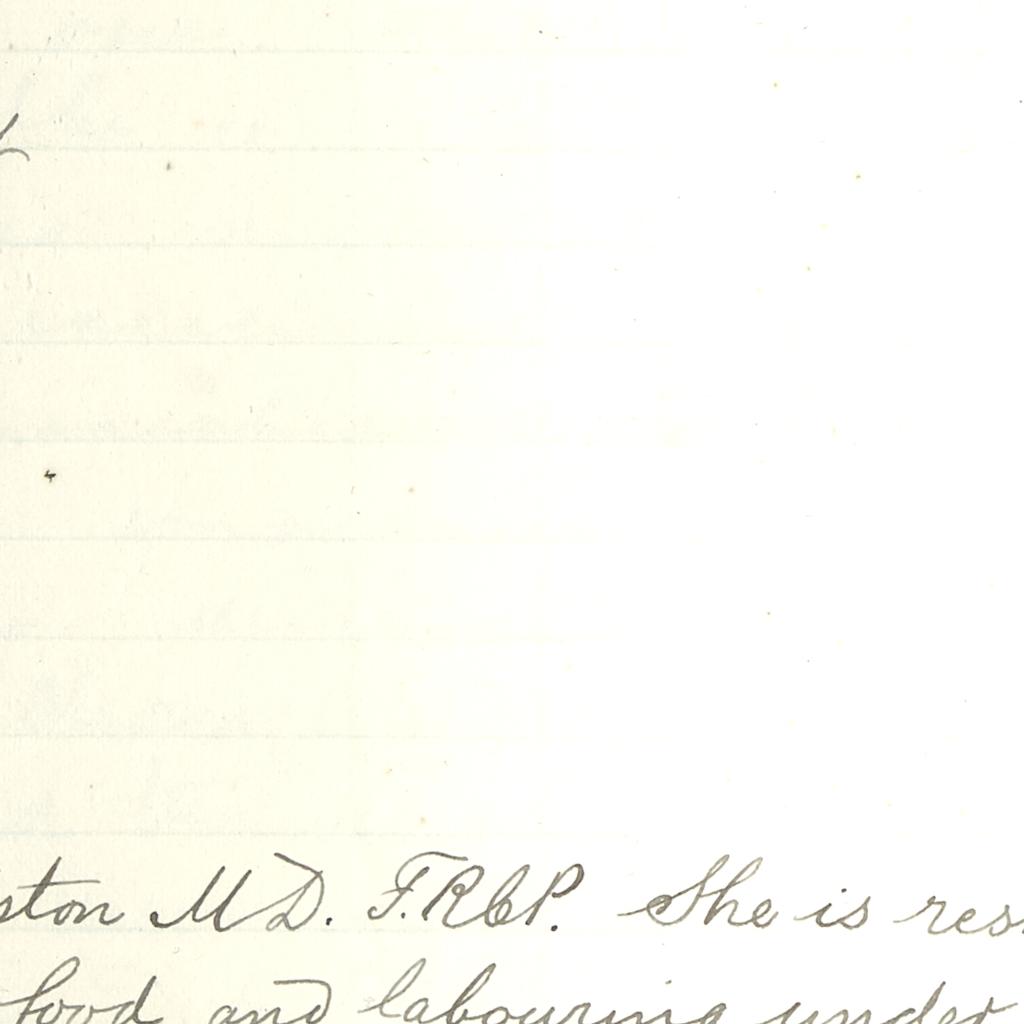 ston MD. F.RCP. She is res
food and labouring under